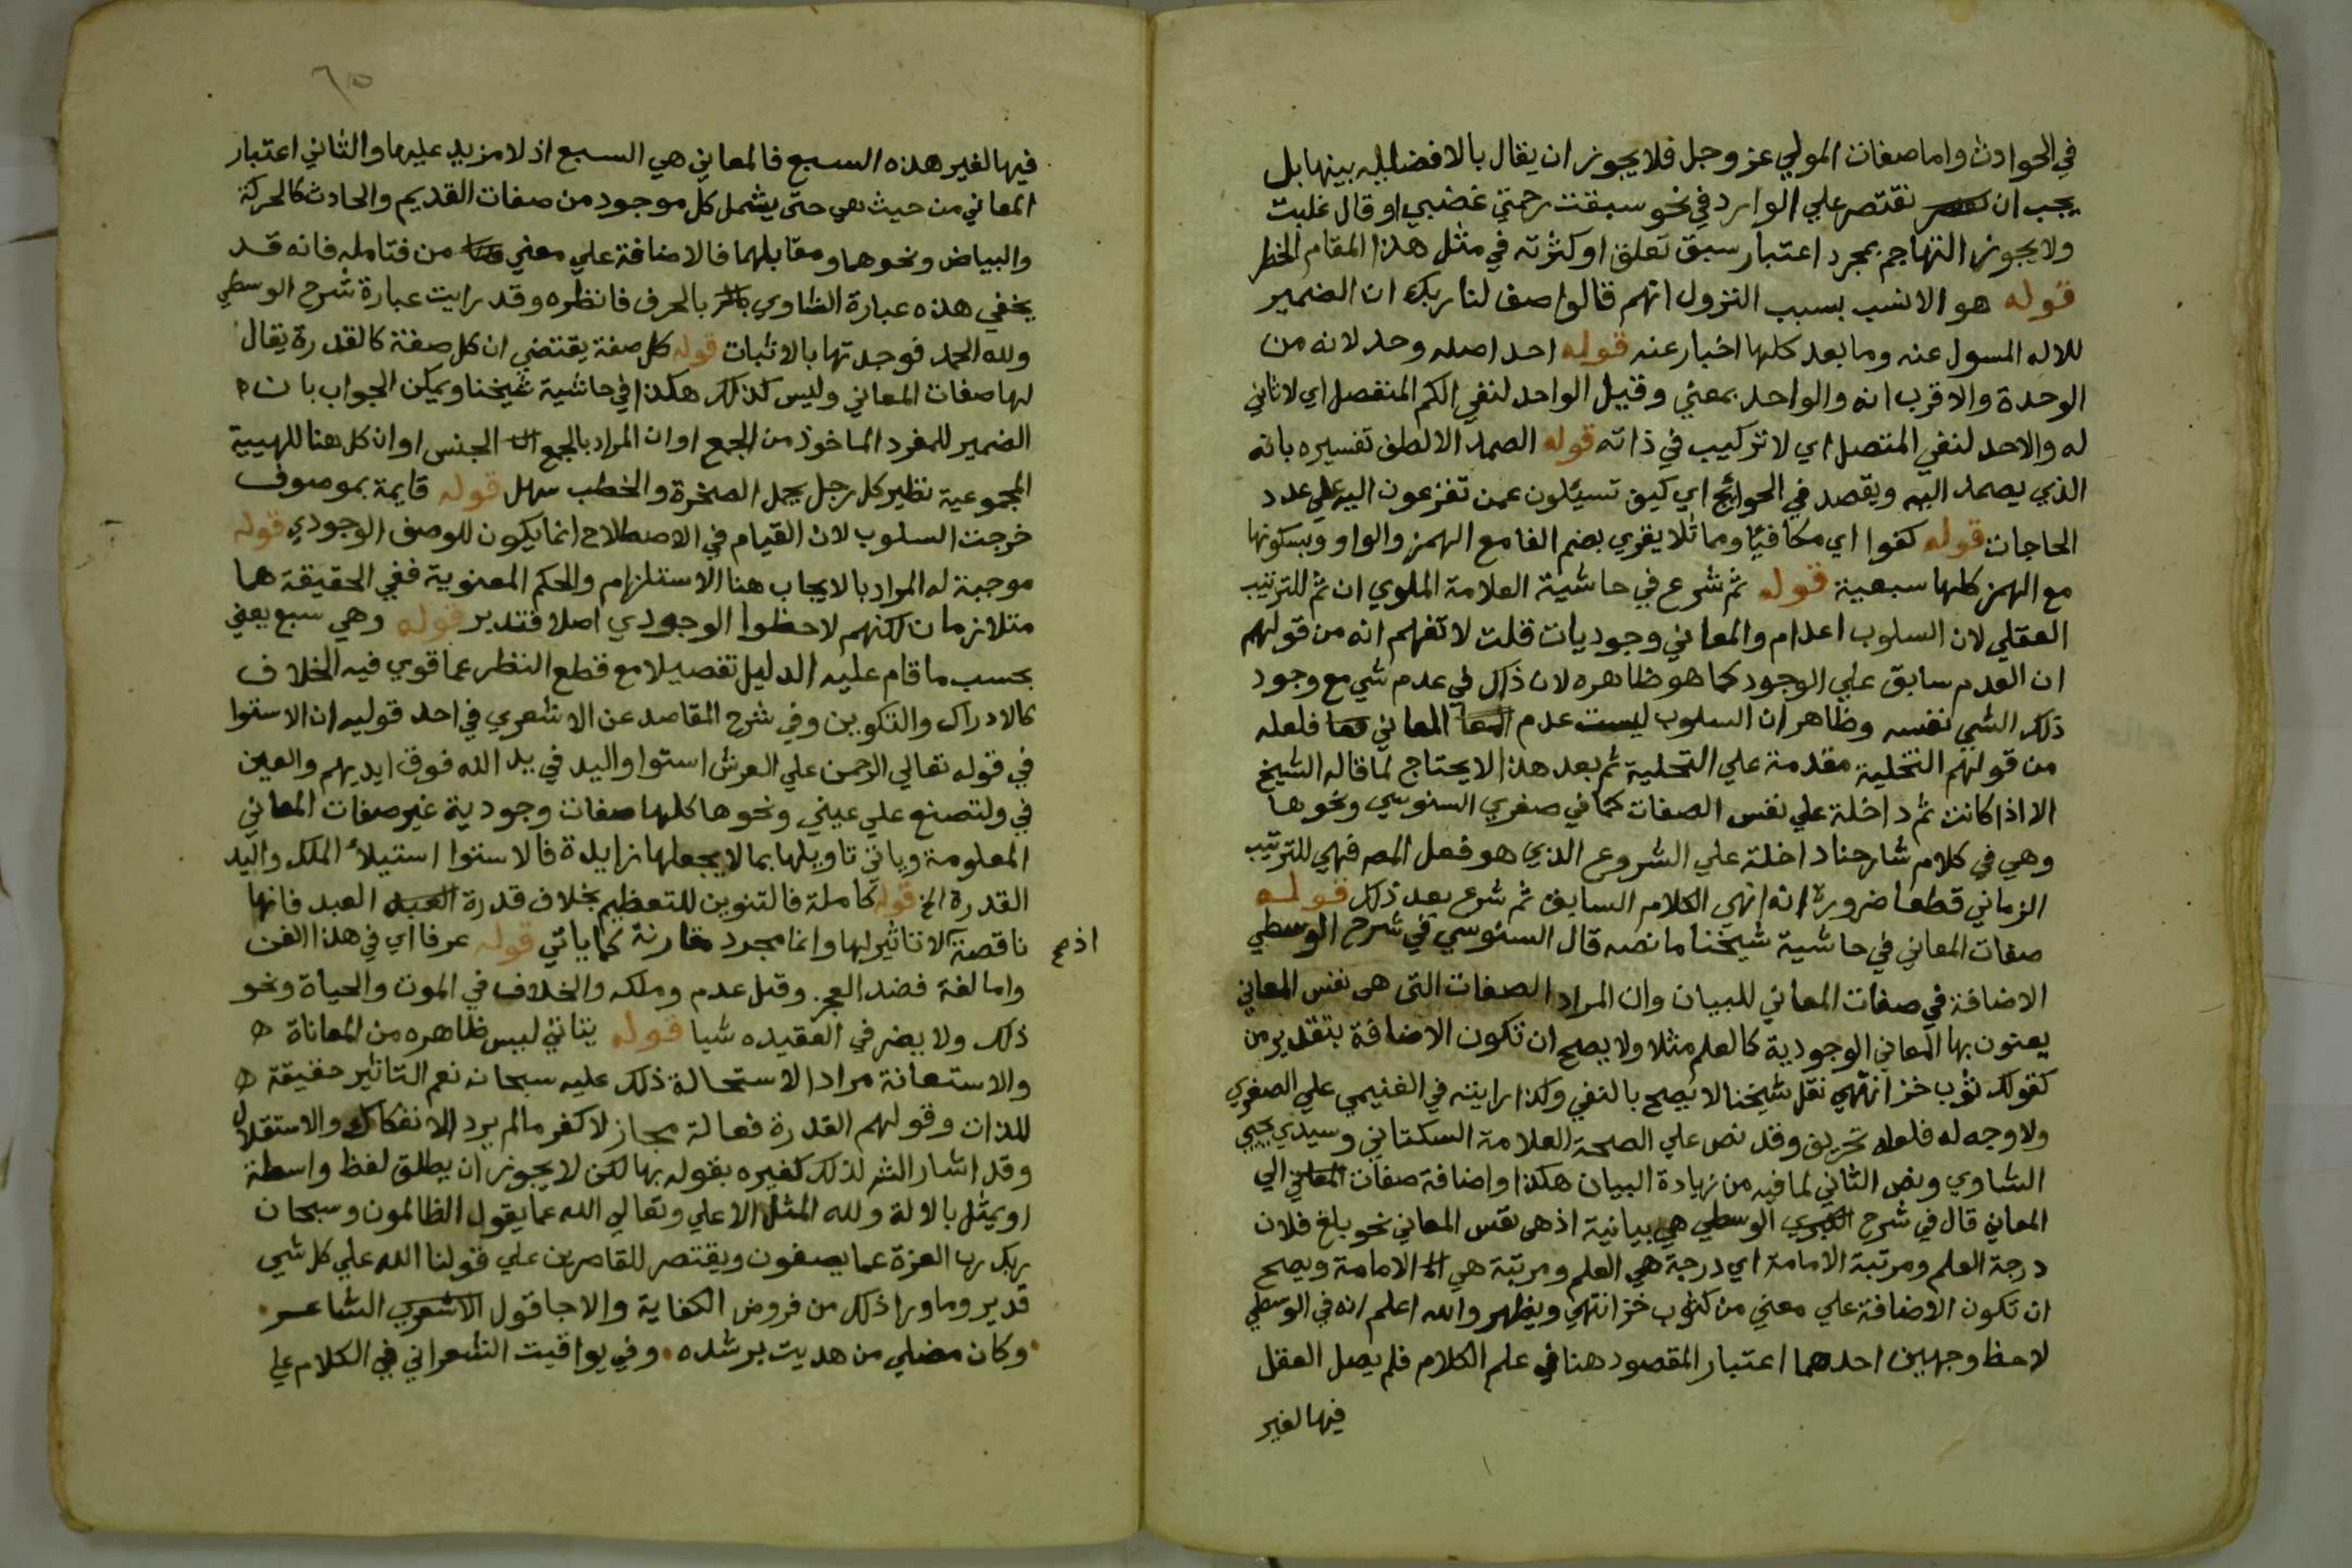 في الحوادث واما صفات المولي عز وجل فلا يجوز ان يقال بالافضلية بينها بل
يجب ان نقتصر علي الوارد في نحو سبقت رحمتي غضبي او قال غلبت
ولا يجوز التهاجم بمجرد اعتبار سبق تعلق او كثرته في مثل هذا المقام الخطر
قوله هو الانسب بسبب النزول انهم قالوا صف لنا ربك ان الضمير
للاله المسول عنه وما بعد كلها اخبار عنه قوله احد اصله وحد لانه من
الوحدة والاقرب انه والواحد بمعني وقيل الواحد لنفي الكم المنفصل اي لا ثاني
له والاحد لنفي المتصل اي لا تركيب في ذاته قوله الصمد الالطف تفسيره بانه
الذي يصمد اليه ويقصد في الحوائج اي كيف تسيئلون عمن تفزعون اليه علي عدد
الحاجات قوله كفوا اي مكافيا ومماثلا يقري بضم الفا مع الهمز والواو وبسكونها
مع الهمز كلها سبعية قوله ثم شرع في حاشية العلامة الملوي ان ثم للترتيب
العقلي لان السلوب اعدام والمعاني وجوديات قلت لا تفهم انه من قولهم
ان العدم سابق علي الوجود كما هو ظاهره لان ذلك في عدم شي مع وجود
ذلك الشي نفسه وظاهر ان السلوب ليست عدم المعاني فلعله
من قولهم التخلية مقدمة علي التحلية ثم بعد هذا لا يحتاج لما قاله الشيخ
الا اذا كانت ثم داخلة علي نفس الصفات كما في صغري السنوسي ونحوها
وهي في كلام شارحنا داخلة علي الشروع الذي هو فعل المص فهي للترتيب
الزماني قطعا ضرورة انه انهي الكلام السابق ثم شرع بعد ذلك قوله
صفات المعاني في حاشية شيخنا ما نصه قال السنوسي في شرح الوسطي
الاضافة في صفات المعاني للبيان وان المراد الصفات التي هي نفس المعاني
يعنون بها المعاني الوجودية كالعلم مثلا ولا يصح ان تكون الاضافة بتقدير من
كقولك ثوب خز انتهي نقل شيخنا لا يصح بالنفي وكذا رايته في الغنيمي علي الصغري
ولا وجه له فلعله تحريف وقد نص علي الصحة العلامة السكتاني وسيدي يحيي
الشاوي ونص الثاني لما فيه من زيادة البيان هكذا واضافة صفات المعاني الي
المعاني قال في شرح الوسطي هي بيانية اذ هي نفس المعاني نحو بلغ فلان
درجة العلم ومرتبة الامامة اي درجة هي العلم ومرتبة هي الامامة ويصح
ان تكون الاضافة علي معني من كثوب خز انتهي ويظهر والله اعلم انه في الوسطي
لاحظ وجهين احدهما اعتبار المقصود هنا في علم الكلام فلم يصل العقل
فيها لغير
٦٥
فيها لغير هذه السبع فالمعاني هي السبع اذ لا مزيد عليها والثاني اعتبار
المعاني من حيث هي حتي يشمل كل موجود من صفات القديم والحادث كالحركة
والبياض ونحوهما ومقابلهما فالاضافة علي معني من فتامله فانه قد
يخفي هذه عبارة الشاوي بالحرف فانظره وقد رايت عبارة شرح الوسطي
ولله الحمد فوجدتها بالاثبات قوله كل صفة يقتضي ان كل صفة كالقدرة يقال
لها صفات المعاني وليس كذلك هكذا في حاشية شيخنا ويمكن الجواب بان
الضمير للمفرد الماخوذ من الجمع او ان المراد بالجمع الجنس او ان كل هنا للهيية
المجموعية نظير كل رجل يحمل الصخرة والخطب سهل قوله قايمة بموصوف
خرجت السلوب لان القيام في الاصطلاح انما يكون للوصف الوجودي قوله
موجبة له المراد بالايجاب هنا الاستلزام والحكم المعنوية ففي الحقيقة هما
متلازمان لكنهم لاحظوا الوجودي اصلا فتدبر قوله وهي سبع يعني
بحسب ما قام عليه الدليل تفصيلا مع قطع النظر عما قوي فيه الخلاف
كالادراك والتكوين وفي شرح المقاصد عن الاشعري في احد قوليه ان الاستوا
في قوله تعالي الرحمن علي العرش استوا واليد في يد الله فوق ايديهم والعين
في ولتصنع علي عيني ونحوها كلها صفات وجودية غير صفات المعاني
المعلومة وياتي تاويلها بما لا يجعلها زايدة فالاستوا استيلاء الملك واليد
القدرة الخ قوله كاملة فالتنوين للتعظيم بخلاف قدرة العبد العبد فانها
ناقصة لا تاثير لها وانما مجرد مقارنة كما ياتي قوله عرفا اي في هذا الفن
اذ صح
واما لغة فضد العجز وقيل عدم وملكه والخلاف في الموت والحياة ونحو
ذلك ولا يضر في العقيده شيا قوله يتاتي ليس ظاهره من المعاناة
والاستعانة مرادا لاستحالة ذلك عليه سبحانه نعم التاثير حقيقة
للذات وقولهم القدرة فعالة مجاز لا كفر ما لم يرد الانفكاك والاستقلال
وقد اشار الش لذلك كغيره بقوله بها لكن لا يجوز ان يطلق لفظ واسطة
او يمثل بالالة ولله المثل الاعلي وتعالي الله عما يقول الظالمون وسبحان
ربك رب العزة عما يصفون ويقتصر للقاصرين علي قولنا الله علي كل شي
قدير وما ورا ذلك من فروض الكفاية والا جا قول الشاعر
وكان مضلي من هديت برشده وفي يواقيت الشعراني في الكلام علي